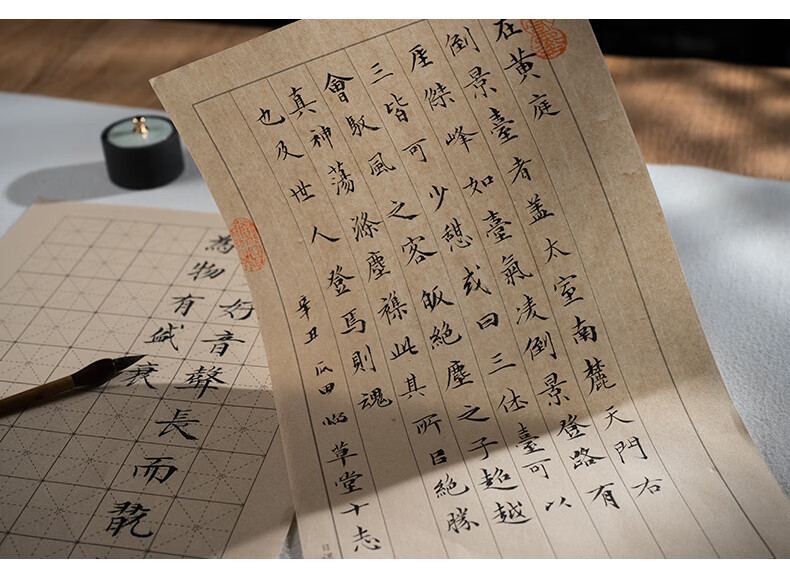 在黃庭
倒景臺者盖太室南麓天門右
厓傑峰如臺氣凌倒景登路有
三皆可少憩或曰三休臺可以
會馭風之客皈絕塵之子超越
真神蕩滌塵襟此其所㠯絕勝
也及世人登焉則魂
辛丑瓜田草堂十志
好音聲長而翫
為物有盛衰